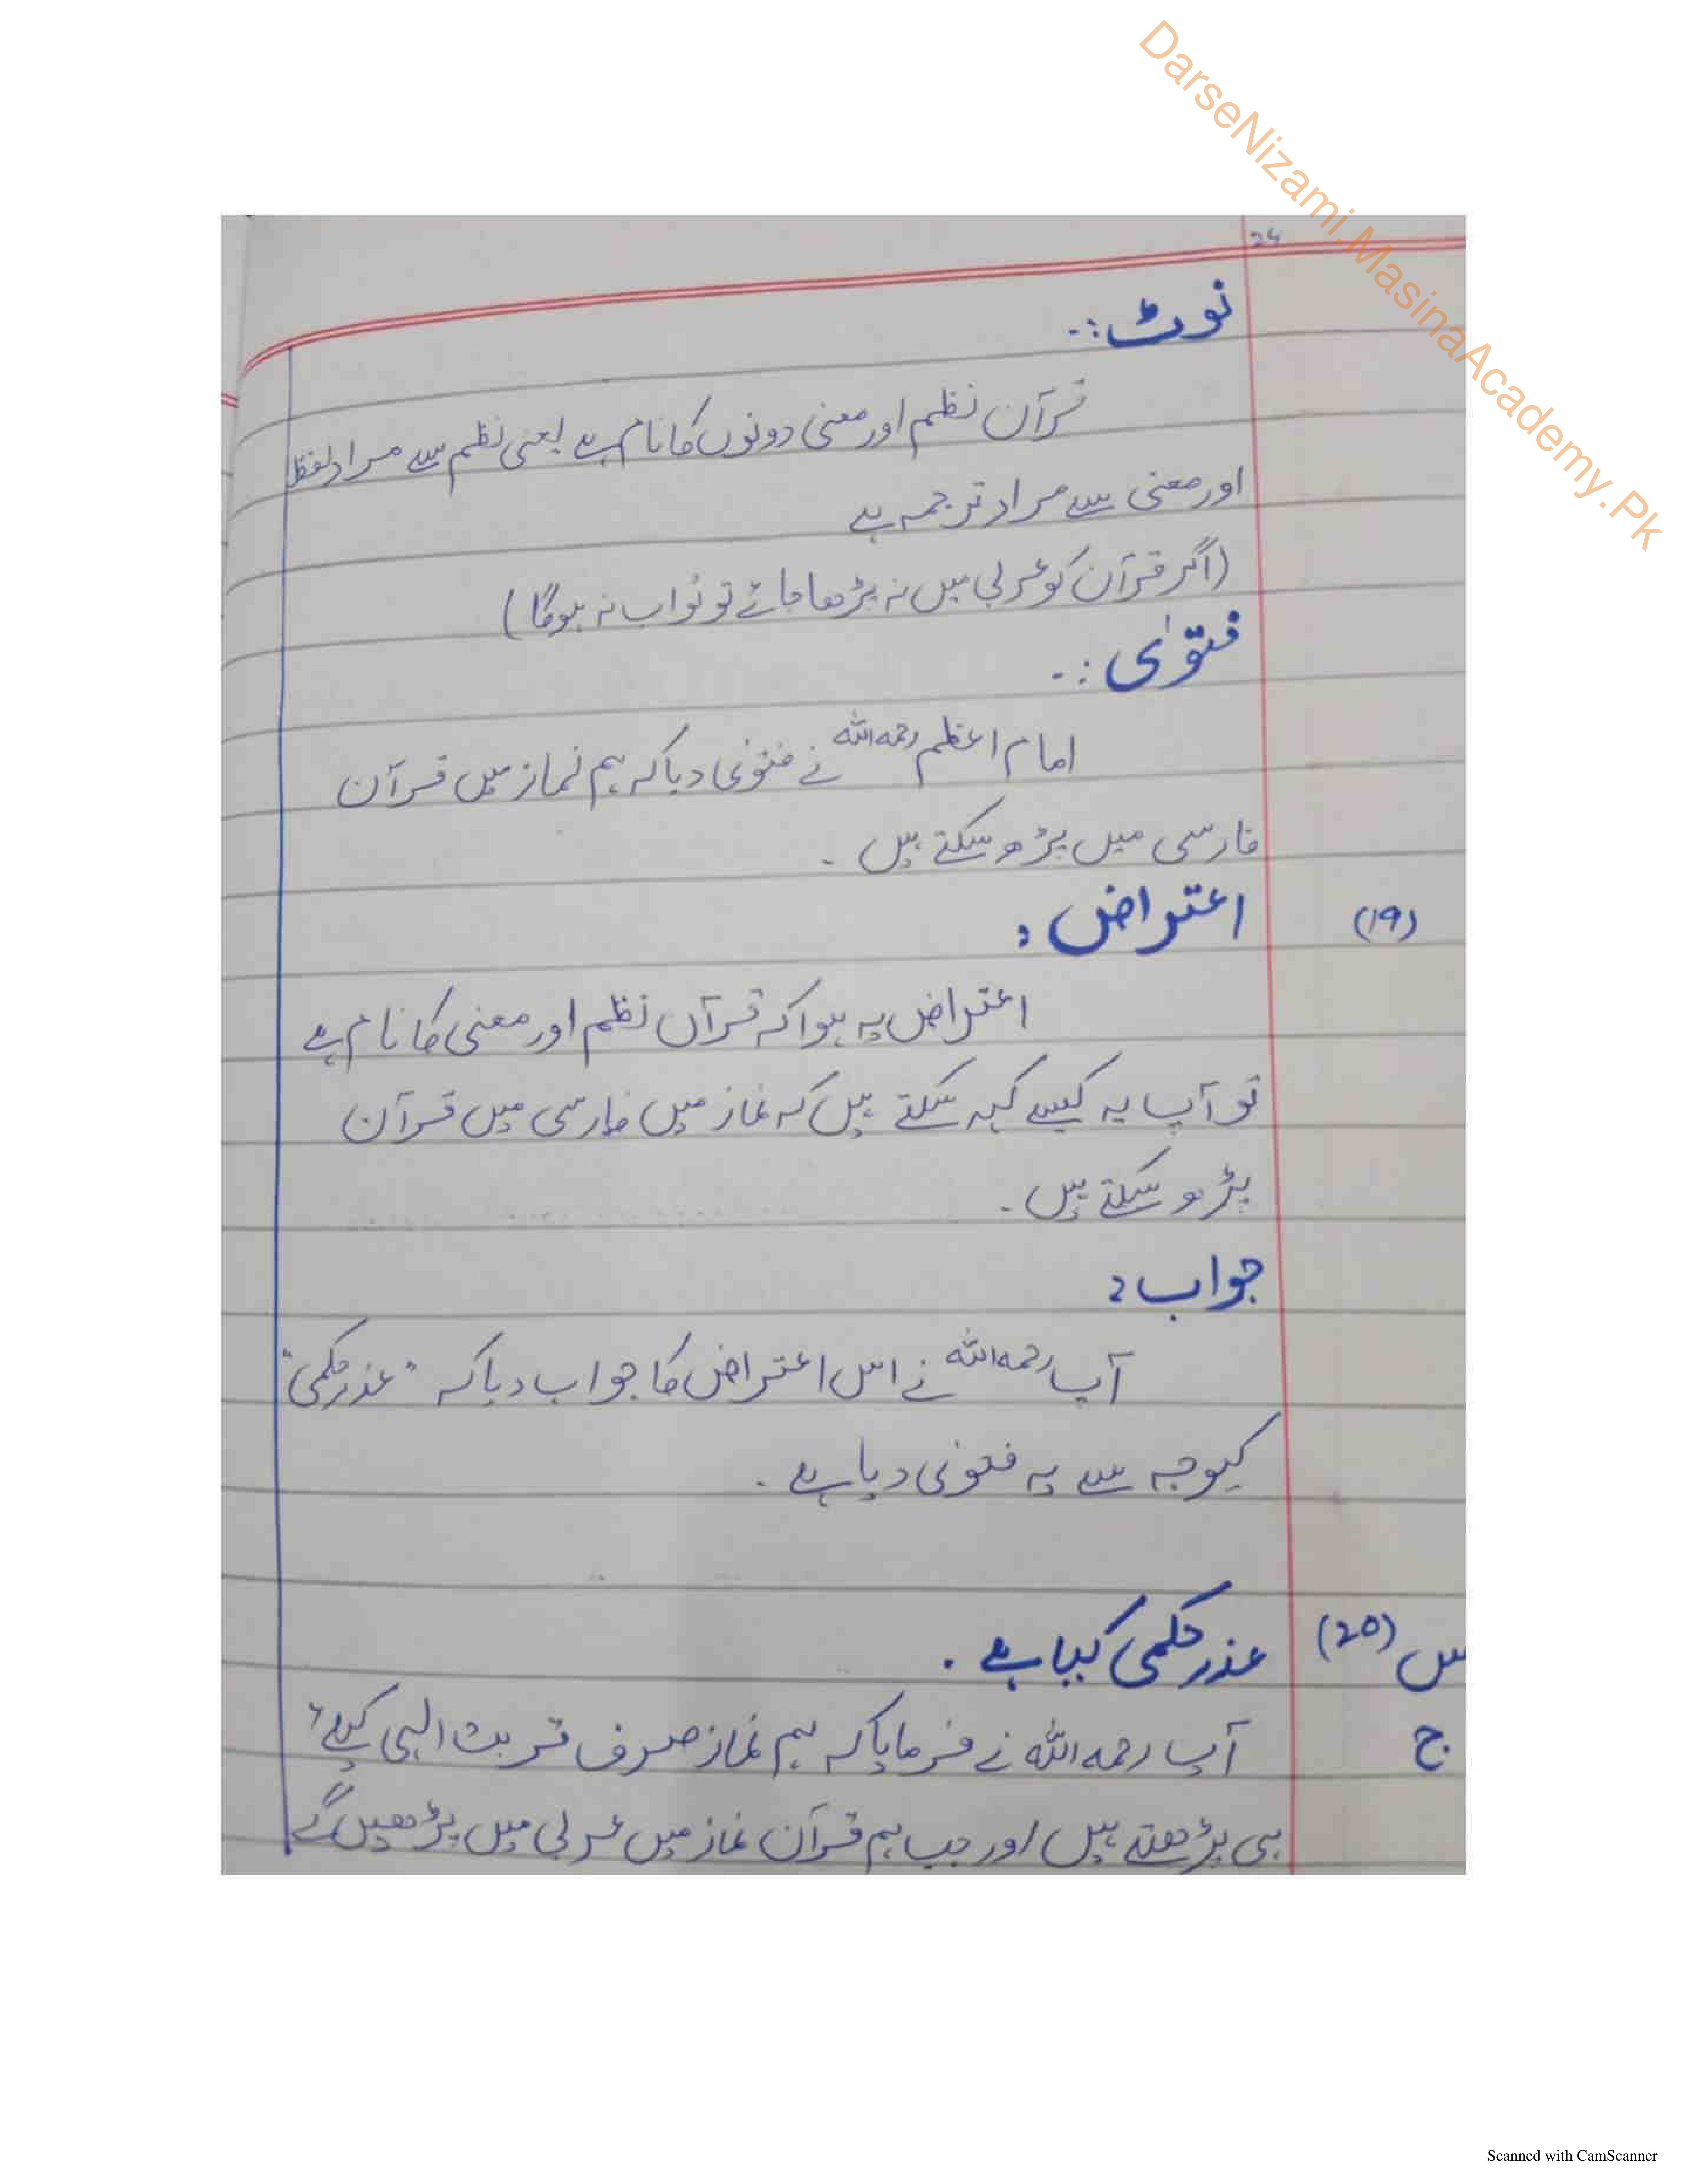 DarseNizami.MasinaAcademy.Pk
24
نوٹ:۔
قرآن نظم اور معنی دونوں کا نام ہے یعنی نظم سے مراد لفظ
اور معنی سے مراد ترجمہ ہے
(اگر قرآن کو عربی میں نہ پڑھا جائے تو ثواب نہ ہوگا)
فتوٰی:۔
امام اعظم رحمہ اللہ نے فتوٰی دیا کہ ہم نماز میں قرآن
فارسی میں پڑھ سکتے ہیں ۔
(19) اعتراض:
اعتراض یہ ہوا کہ قرآن نظم اور معنی کا نام ہے
تو آپ یہ کیسے کہہ سکتے ہیں کہ نماز میں فارسی میں قرآن
پڑھ سکتے ہیں ۔
جواب:
آپ رحمہ اللہ نے اس اعتراض کا جواب دیا کہ "عذر حکمی"
کیوجہ سے یہ فتوٰی دیا ہے ۔
س (20) عذر حکمی کیا ہے ۔
ج آپ رحمہ اللہ نے فرمایا کہ ہم نماز صرف قربت الہی کیلئے
ہی پڑھتے ہیں اور جب ہم قرآن نماز میں عربی میں پڑھیں گے
Scanned with CamScanner